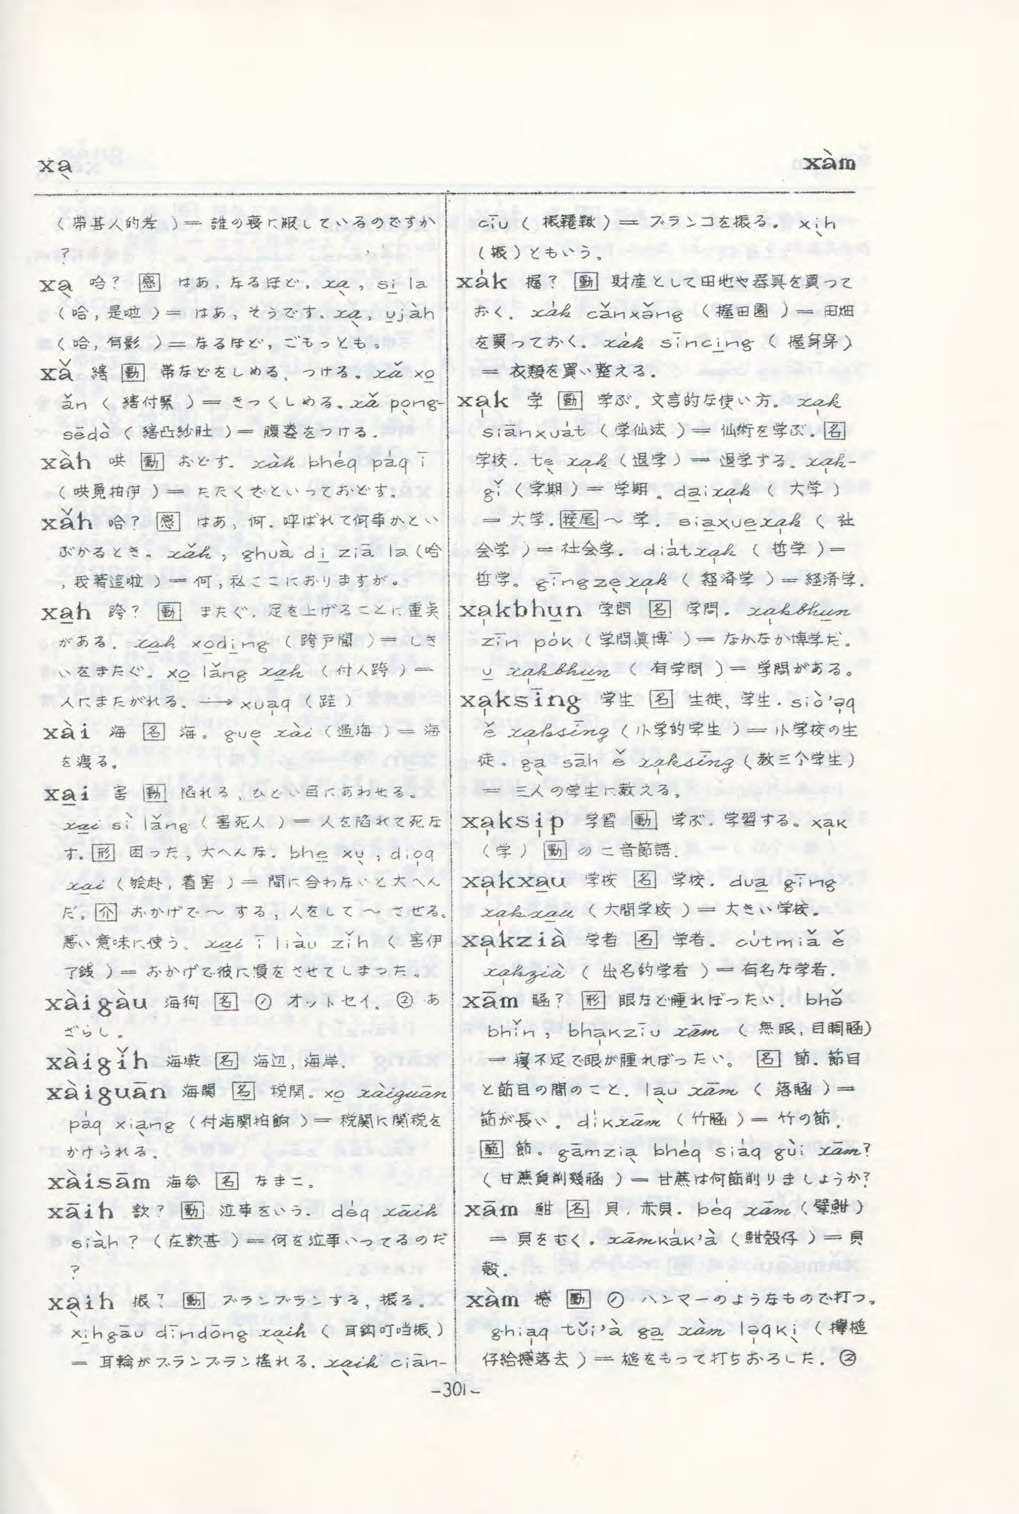 xa̱
xàm
（帶甚人的差）＝誰の寝に服しているのですか
？
xa̱ 哈？ 感 はあ，なるほど．xa̱, si̱ la
（哈，是啦）＝はあ，そうです．xa̱, u̱jàh
（哈，有影）＝なるほど，ごもっとも。
xǎ 縖 動 帯などをしめる，つける．xǎ xo̱
ǎn（縖付緊）＝きつくしめる．xǎ po̱ng-
sēdò（縖凸紗肚）＝腹巻をつける．
xàh 哄 動 おどす．xàh bhéq páq ī
（哄覔拍伊）＝たたくぞといっておどす．
xǎh 哈？ 感 はあ，何．呼ばれて何事かとい
ぶかるとき．xǎh, ghuà di̱ ziā la（哈
，我著這啦）＝何，私ここにおりますが。
xa̱h 跨？ 動 またぐ．足を上げることに重奌
がある．xa̱h xodi̱ng（跨戸閣）＝しき
いをまたぐ。xo̱ lǎng xa̱h（付人跨）＝
人にまたがれる．→ xua̱q（跬）
xài 海 名 海。gue̱ xài（過海）＝海
を渡る。
xa̱i 害 動 陥れる，ひどい目にあわせる。
xa̱i sì lǎng（害死人）＝人を陥れて死な
す．形 困った，大へんな．bhe̱ xu̱, dio̱q
xa̱i（絵赴，着害）＝間に合わないと大へん
だ。介 おかげで～する，人をして～させる。
悪い意味に使う。xa̱i ī liàu zǐh（害伊
了銭）＝おかげで彼に損をさせてしまった。
xàigàu 海狗 名 ① オットセイ．② あ
ざらし。
xàigǐh 海墘 名 海辺，海岸．
xàiguān 海関 名 税関。xo̱ xàiguān
páq xia̱ng（付海関拍餉）＝税関に関税を
かけられる．
xàisām 海参 名 なまこ．
xāih 欸？ 動 泣事をいう．déq xāih
siàh？（在欸甚）＝何を泣事いってるのだ
？
xa̱ih 振？ 動 ブランブランする，振る。
xi̱hgāu dīndōng xa̱ih（耳鈎叮当振）
＝耳輪がブランブラン揺れる．xa̱ih ciān-
cīu（振韆鞦）＝ブランコを振る．xi̱h
（振）ともいう．
xák 握？ 動 財産として田地や器具を買って
おく．xák cǎnxǎng（握田園）＝田畑
を買っておく．xák sīncing（握身穿）
＝衣類を買い整える．
xa̍k 学 動 学ぶ．文言的な使い方．xa̍k
siānxuát（学仙法）＝仙術を学ぶ．名
学校．te̱ xa̍k（退学）＝退学する．xa̍k-
gǐ（学期）＝学期。da̱ixa̍k（大学）
＝大学．接尾 ～学．sia̱xue̱xa̍k（社
会学）＝社会学．diátxa̍k（哲学）＝
哲学。gīngze̱xa̍k（経済学）＝経済学．
xa̍kbhu̱n 学問 名 学問．xa̍kbhu̱n
zīn pók（学問眞博）＝なかなか博学だ．
u̱ xa̍kbhu̱n（有学問）＝学問がある。
xa̍ksīng 学生 名 生徒，学生．siò'ə̍q
ě xa̍ksīng（小学的学生）＝小学校の生
徒．ga̱ sāh ě xa̍ksīng（教三个学生）
＝三人の学生に教える。
xa̍ksi̍p 学習 動 学ぶ．学習する。xa̍k
（学）動 の二音節語．
xa̍kxa̱u 学校 名 学校．dua̱ gīng
xa̍kxa̱u（大間学校）＝大きい学校．
xa̍kzià 学者 名 学者．cútmiǎ ě
xa̍kzià（出名的学者）＝有名な学者．
xām 形 眼など腫れぼったい．bhǒ
bhǐn, bha̍kzīu xām
＝寝不足で眼が腫れぼったい。名 節．節目
と節目の間のこと．la̱u xām
節が長い．díkxām ＝竹の節．
範 節．gāmzia̱ bhéq siáq gùi xām?
＝甘蔗は何節削りましょうか？
xām 蚶 名 貝，赤貝．béq xām（擘蚶）
＝貝をむく．xāmkák'à（蚶殻仔）＝貝
殻．
xàm 撼 動 ① ハンマーのようなもので打つ。
ghia̍q tǔi'à ga̱ xàm lə̍qki̱
仔給撼落去）＝槌をもって打ちおろした．②
-301-